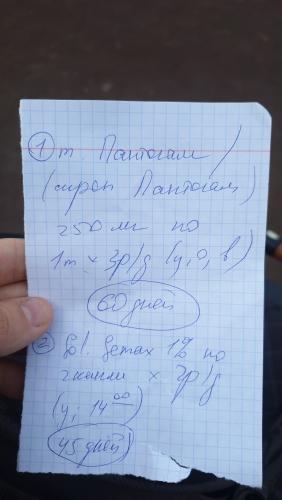 ① т. Пантогам /
(сироп Пантогам)
250 мг по
1т × 3р/д (у, о, в)
60 дней
② Sol. Semax 1% по
2 капли × 2р/д
(у, 14⁰⁰)
45 дней